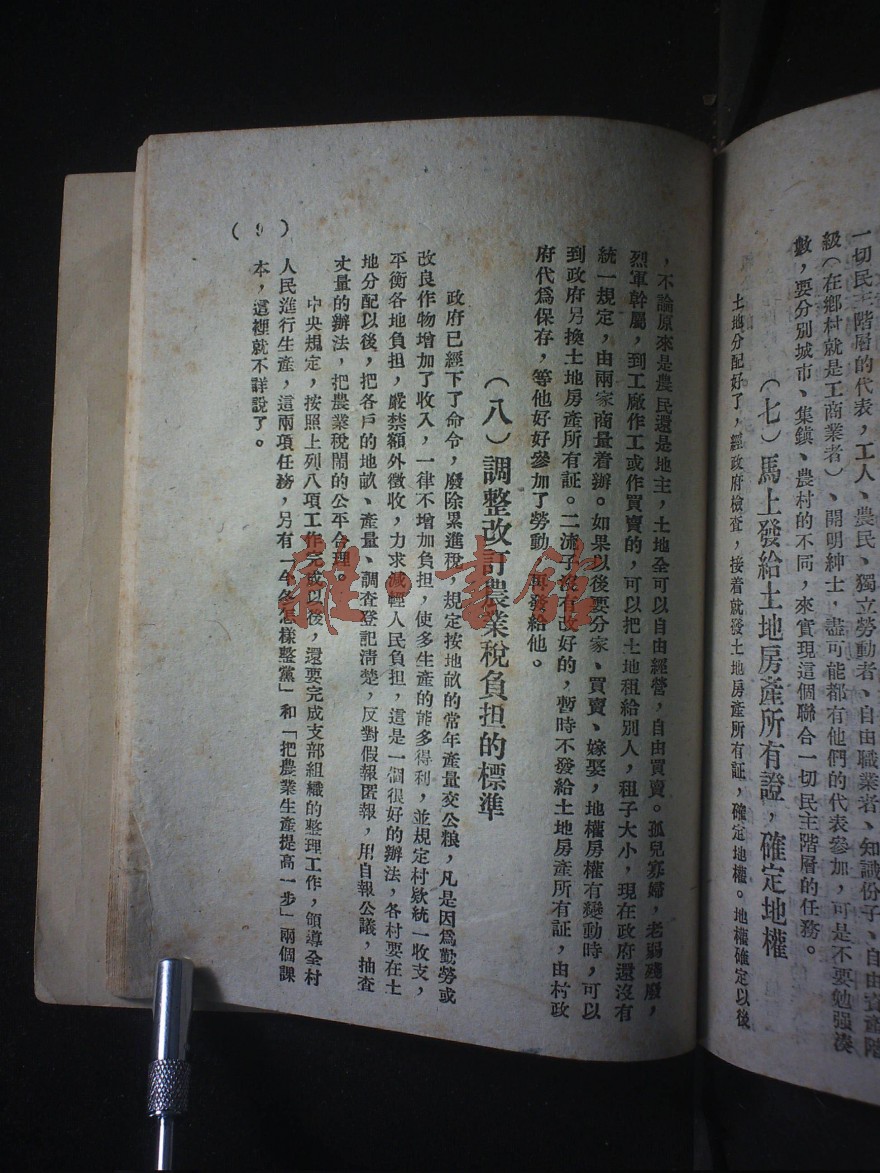 一切民主階層的代表，工人、農民、獨立勞動者、自由職業者、知識份子、自由資產階
級（在鄉村就是工商業者）、開明紳士，盡可能都有他們的代表參加，可是不要勉强湊
數，要分別城市、集鎮、農村的不同，來實現這個聯合一切民主階層的任務。
（七）馬上發給土地房產所有證，確定地權
土地分配好了，經政府檢查，接着就發土地房產所有証，確定地權。地權確定以後
，不論原來是農民還是地主，土地全可以自由經營，自由買賣。孤兒寡婦，老弱殘廢，
烈軍幹屬，到工廠作工或作買賣的，可以把土地租給別人，租子大小，現在政府還沒有
統一規定，由兩家商量着辦。如果以後要分家、買賣、嫁娶，地權房權有變動時，可以
到政府另換土地房產所有証。二流子沒有改好的，暫時不發給土地房產所有証，由村政
府代爲保存，等他好好參加了勞動，再發給他。
（八）調整改訂農業稅負担的標準
政府已經下了命令，廢除累進稅，規定按地畝的常年產量交公粮，凡是因爲勤勞或
改良作物增加了收入，一律不增加負担，使多生產的能多得利，並規定村欵統一收支，
平衡各地負担，嚴禁額外徵收，力求減輕人民負担，這是一個很好的辦法，各村要在土
地分配以後，把各戶的地畝、產量、調查登記清楚，反對假報匿報，用自報公議，抽查
丈量的辦法，把農業稅鬧的公平合理。
中央規定，按照上列八項工作完成以後，還要完成支部組織的整理工作，領導全村
人民進行生產，這兩項任務，另有「今冬怎樣整黨」和「把農業生產提高一步」兩個課
本，這裡就不詳說了。
（9）
雜·書館